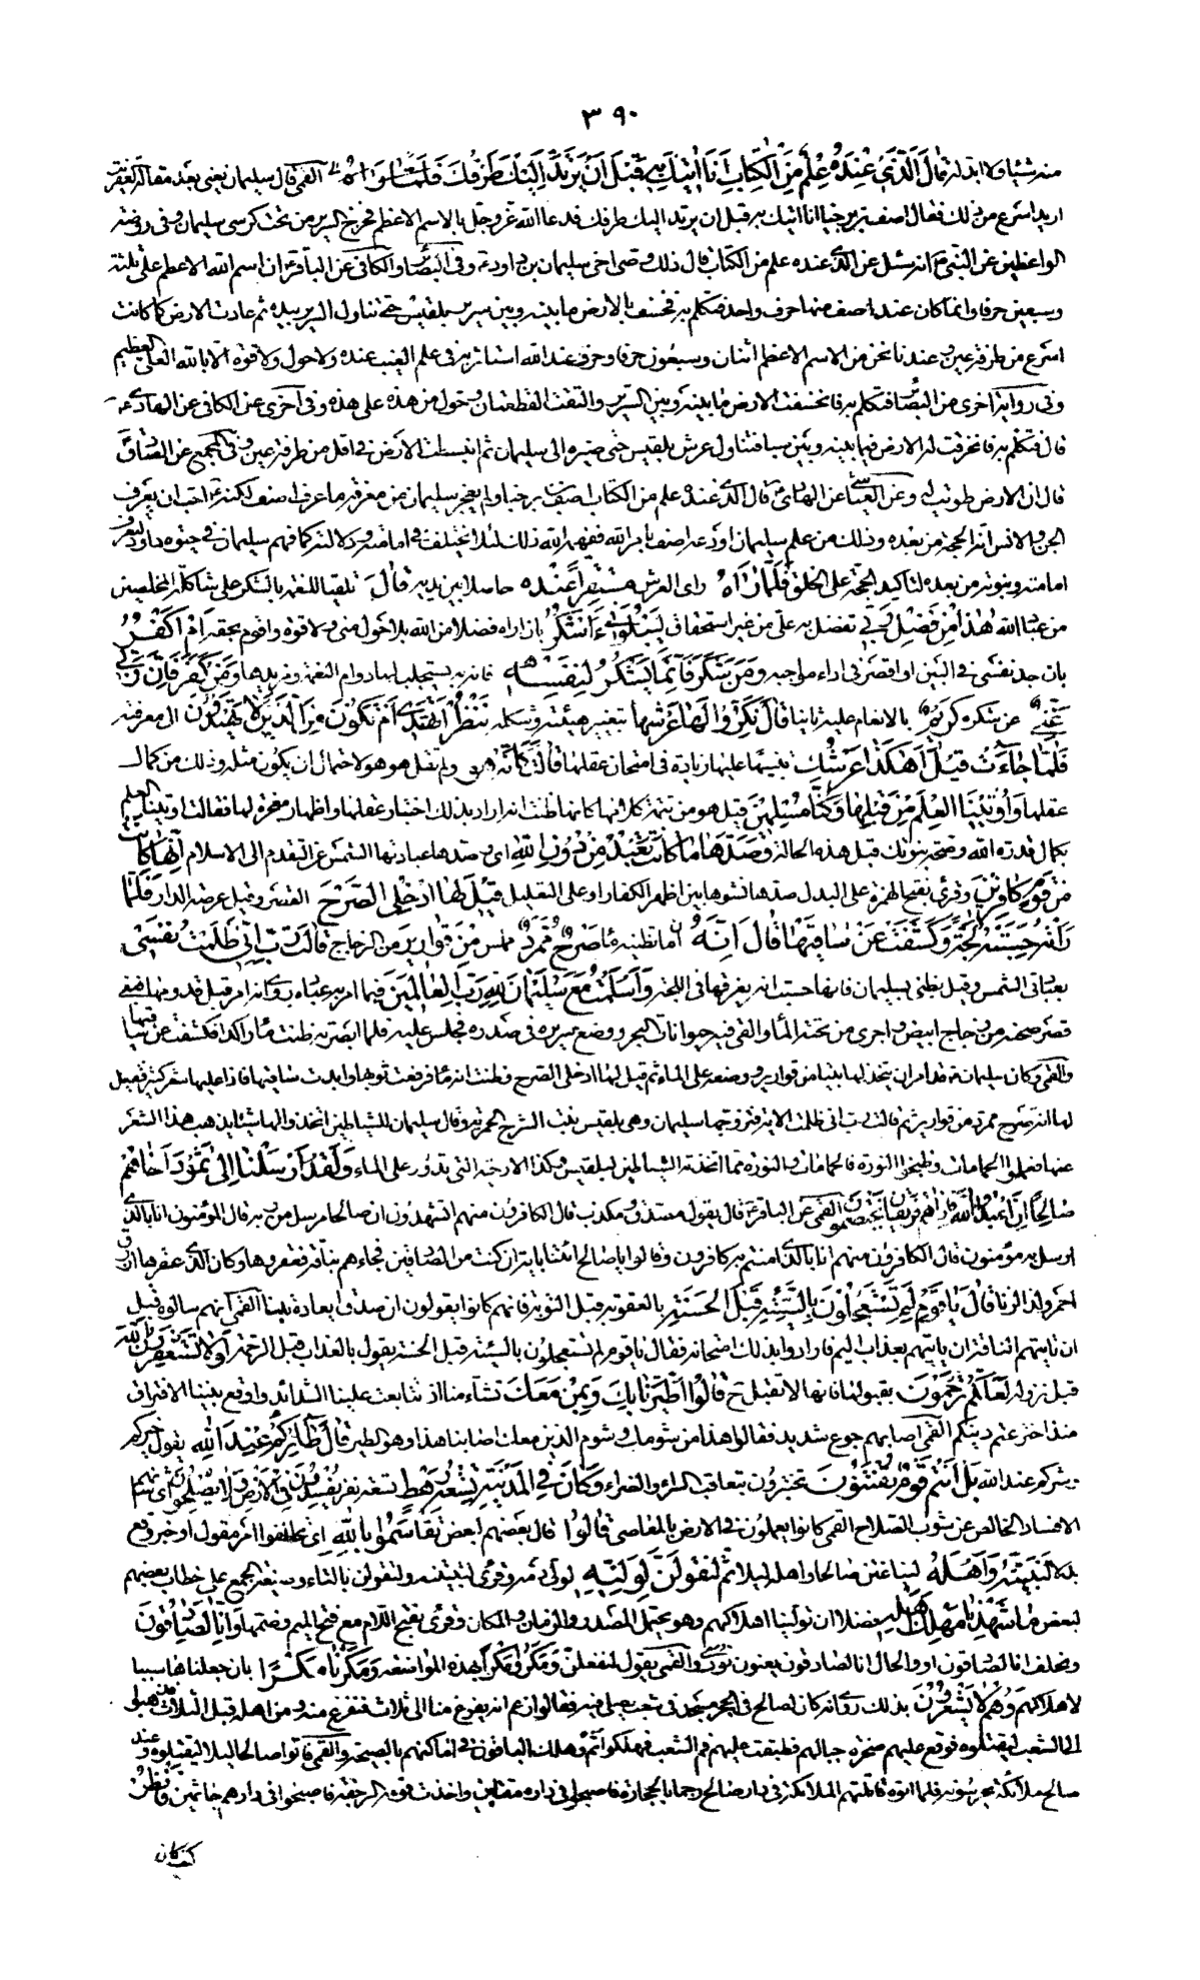 ٣٩٠
منه شيئا ولا ابدله قال الذي عنده علم من الكتاب انا اتيك به قبل ان يرتد اليك طرفك فلما راه القمي قال سليمان يعني بعد مقالة العفريت
اريد اسرع من ذلك فقال اصف بن برخيا انا اتيك به قبل ان يرتد اليك طرفك فدعا الله عز وجل بالاسم الاعظم فخرج السرير من تحت كرسي سليمان وفي روضة
الواعظين عن النبي ص انه سئل عن الذي عنده علم من الكتاب قال ذلك وصي اخي سليمان بن داود ع وفي البصائر والكافي عن الباقر ع ان اسم الله الاعظم على ثلثة
وسبعين حرفا وانما كان عند اصف منها حرف واحد فتكلم به فخسف بالارض ما بينه وبين سرير بلقيس حتى تناول السرير بيده ثم عادت الارض كما كانت
اسرع من طرفة عين وعندنا نحن من الاسم الاعظم اثنان وسبعون حرفا وحرف عند الله استاثر به في علم الغيب عنده ولا حول ولا قوة الا بالله العلي العظيم
وفي رواية اخرى من البصائر فتكلم به فانخسفت الارض ما بينه وبين السرير والتقت القطعتان وحول من هذه على هذه وفي اخرى عن الكافي عن الهادي ع
قال فتكلم به فانخرقت له الارض فيما بينه وبين سبا فتناول عرش بلقيس حتى صيره الى سليمان ثم انبسطت الارض في اقل من طرفة عين وفي المجمع عن الصادق
قال ان الارض طويت له وعن العياشي عن الهادي ع قال الذي عنده علم من الكتاب اصف بن برخيا ولم يعجز سليمان عن معرفة ما عرف اصف لكنه ع احب ان يعرف
الجن والانس انه الحجة من بعده وذلك من علم سليمان اودعه اصف بامر الله ففهمه الله ذلك لئلا يختلف في امامته ودلالته كما فهم سليمان في حيوة داود ليعرف
امامته ونبوته من بعده لتاكيد الحجة على الخلق فلما راه راى العرش مستقرا عنده حاصلا بين يديه قال تلقيا للنعمة بالشكر على شاكلة المخلصين
من عباد الله هذا من فضل ربي تفضل به علي من غير استحقاق ليبلوني ءاشكر بان اراه فضلا من الله بلا حول مني ولا قوة واقوم بحقه ام اكفر
بان اجد نفسي في البين او اقصر في اداء مواجبه ومن شكر فانما يشكر لنفسه فانه به يستجلب لها دوام النعمة ومزيدها ومن كفر فان ربي
غني عن شكره كريم بالانعام عليه ثانيا قال نكروا لها عرشها بتغيير هيئته وشكله ننظر اتهتدي ام تكون من الذين لا يهتدون الى معرفته
فلما جاءت قيل اهكذا عرشك تشبيها عليها زيادة في امتحان عقلها قالت كانه هو ولم تقل هو هو لاحتمال ان يكون مثله وذلك من كمال
عقلها واوتينا العلم من قبلها وكنا مسلمين قيل هو من تتمة كلامها كانها ظنت انه اراد بذلك اختبار عقلها واظهار معجزة لها فقالت اوتينا العلم
بكمال قدرة الله وصحة نبوتك قبل هذه الحالة وصدها ما كانت تعبد من دون الله اي وصدها عبادتها الشمس عن التقدم الى الاسلام انها كانت
من قوم كافرين وقرئ بفتح الهمزة على البدل صدها نشوها بين اظهر الكفار او على التعليل قيل لها ادخلي الصرح القصر وقيل عرصة الدار فلما
راته حسبته لجة وكشفت عن ساقيها قال انه اي ما تظنينه ماء صرح ممرد مملس من قوارير من الزجاج قالت رب اني ظلمت نفسي
بعبادتي الشمس وقيل بظني بسليمان فانها حسبت انه يغرقها في اللجة واسلمت مع سليمان لله رب العالمين فيما امر به عباده روي انه امر قبل قدومها فبني
قصر صحنه من زجاج ابيض واجرى من تحته الماء والقي فيه حيوانات البحر ووضع سريره في صدره فجلس عليه فلما ابصرته ظنت ماء راكدا فكشفت عن ساقيها
والقمي وكان سليمان قد امر ان يتخذ لها بيتا من قوارير ووضعه على الماء ثم قيل لها ادخلي الصرح فظنت انه ماء فرفعت ثوبها وابدت ساقيها فاذا عليها شعر كثير فقيل
لها انه صرح ممرد من قوارير ثم قالت رب اني ظلمت الاية فتزوجها سليمان وهي بلقيس بنت الشرح الحميرية وقال سليمان للشياطين اتخذوا لها شيئا يذهب هذا الشعر
عنها فعملوا الحمامات وطبخوا النورة فالحمامات والنورة مما اتخذته الشياطين لبلقيس وكذا الارحية التي تدور على الماء ولقد ارسلنا الى ثمود اخاهم
صالحا ان اعبدوا الله فاذا هم فريقان يختصمون القمي عن الباقر ع قال يقول مصدق ومكذب قال الكافرون منهم اتشهدون ان صالحا مرسل من ربه قال المؤمنون انا بالذي
ارسل به مؤمنون قال الكافرون منهم انا بالذي امنتم به كافرون وقالوا يا صالح ائتنا باية ان كنت من الصادقين فجاءهم بناقة فعقروها وكان الذي عقرها ازرق
احمر ولد الزنا قال يا قوم لم تستعجلون بالسيئة قبل الحسنة بالعقوبة قبل التوبة فانهم كانوا يقولون ان صدق ايعاده تبنا القمي انهم سالوه قبل
ان تاتيهم الناقة ان ياتيهم بعذاب اليم فارادوا بذلك امتحانه فقال يا قوم لم تستعجلون بالسيئة قبل الحسنة يقول بالعذاب قبل الرحمة لولا تستغفرون الله
قبل نزوله لعلكم ترحمون بقبولها فانها لا تقبل ح قالوا اطيرنا بك وبمن معك تشاءمنا اذ تتابعت علينا الشدائد واوقع بيننا الافتراق
منذ اخترعتم دينكم القمي اصابهم جوع شديد فقالوا هذا من شومك وشوم الذين معك اصابنا هذا وهو الطير قال طائركم عند الله يقول خيركم
وشركم عند الله بل انتم قوم تفتنون تختبرون بتعاقب السراء والضراء وكان في المدينة تسعة رهط تسعة نفر يفسدون في الارض ولا يصلحون اي شانهم
الافساد الخالص عن شوب الصلاح القمي كانوا يعملون في الارض بالمعاصي قالوا قال بعضهم لبعض تقاسموا بالله اي تحالفوا امر مقول او خبر وقع
بدلا لنبيتنه واهله لنباغتن صالحا واهله ليلا ثم لنقولن لوليه لولي دمه وقرئ لتبيتنه ولتقولن بالتاء وصيغة الجمع على خطاب بعضهم
لبعض ما شهدنا مهلك اهله فضلا ان تولينا اهلاكهم وهو يحتمل المصدر والزمان والمكان وقرئ بفتح اللام مع فتح الميم وضمها وانا لصادقون
ونحلف انا لصادقون او والحال انا لصادقون يعنون نوري والقمي يقول لنفعلن ومكروا مكرا بهذه المواضعة ومكرنا مكرا بان جعلناها سببا
لاهلاكهم وهم لا يشعرون بذلك روي انه كان لصالح في الحجر مسجد في شعب يصلي فيه فقالوا زعم انه يفرغ منا الى ثلاث فنفرغ منه ومن اهله قبل الثلاث فذهبوا
الى الشعب ليقتلوه فوقع عليهم صخرة حيالهم فطبقت عليهم فم الشعب فهلكوا ثمة وهلك الباقون في اماكنهم بالصيحة والقمي فاتوا صالحا ليلا ليقتلوه وعند
صالح ملائكة يحرسونه فلما اتوه قاتلتهم الملائكة في دار صالح رجما بالحجارة فاصبحوا في داره مقتلين واخذت قومه الرجفة فاصبحوا في دارهم جاثمين فانظر
كيف كان